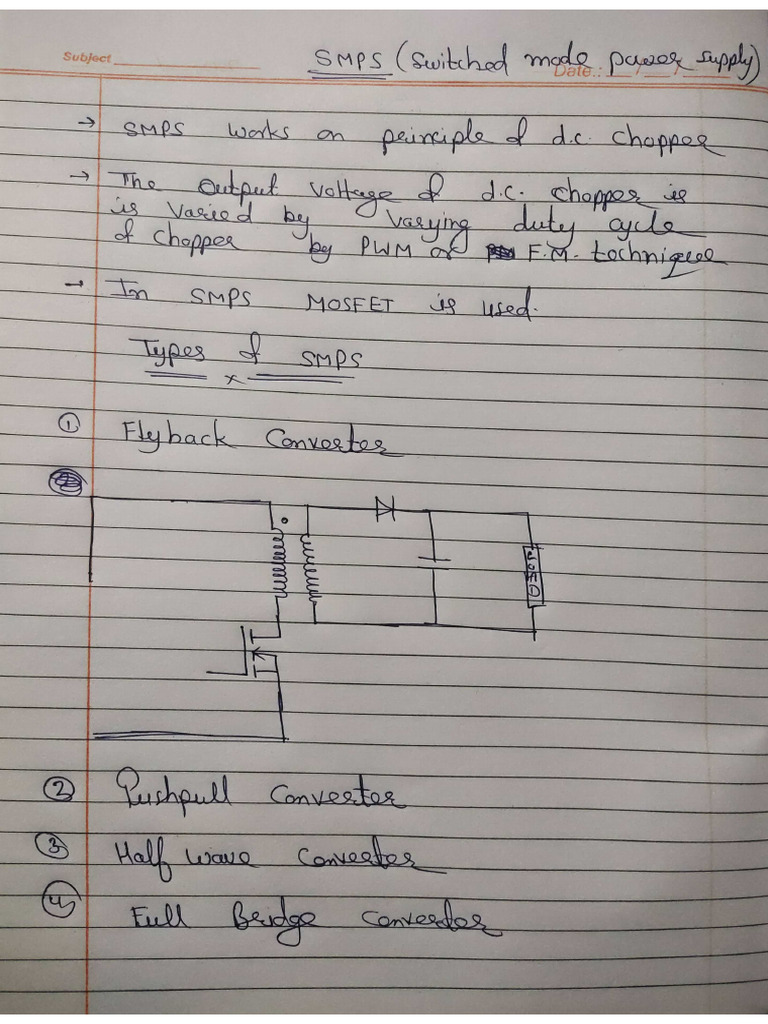 Subject
SMPS (Switched mode power supply)
Date.:
→ SMPS works on peinciple of d.c. chopper
→ The output voltage of d.c. chopper is
is varied by varying duty cycle
of chopper by PWM or F.M. technique
→ In SMPS MOSFET is used.
Types of SMPS
x
① Flyback Converter
LOAD
② Pushpull Converter
③ Half wave Converter
④ Full Bridge Converter